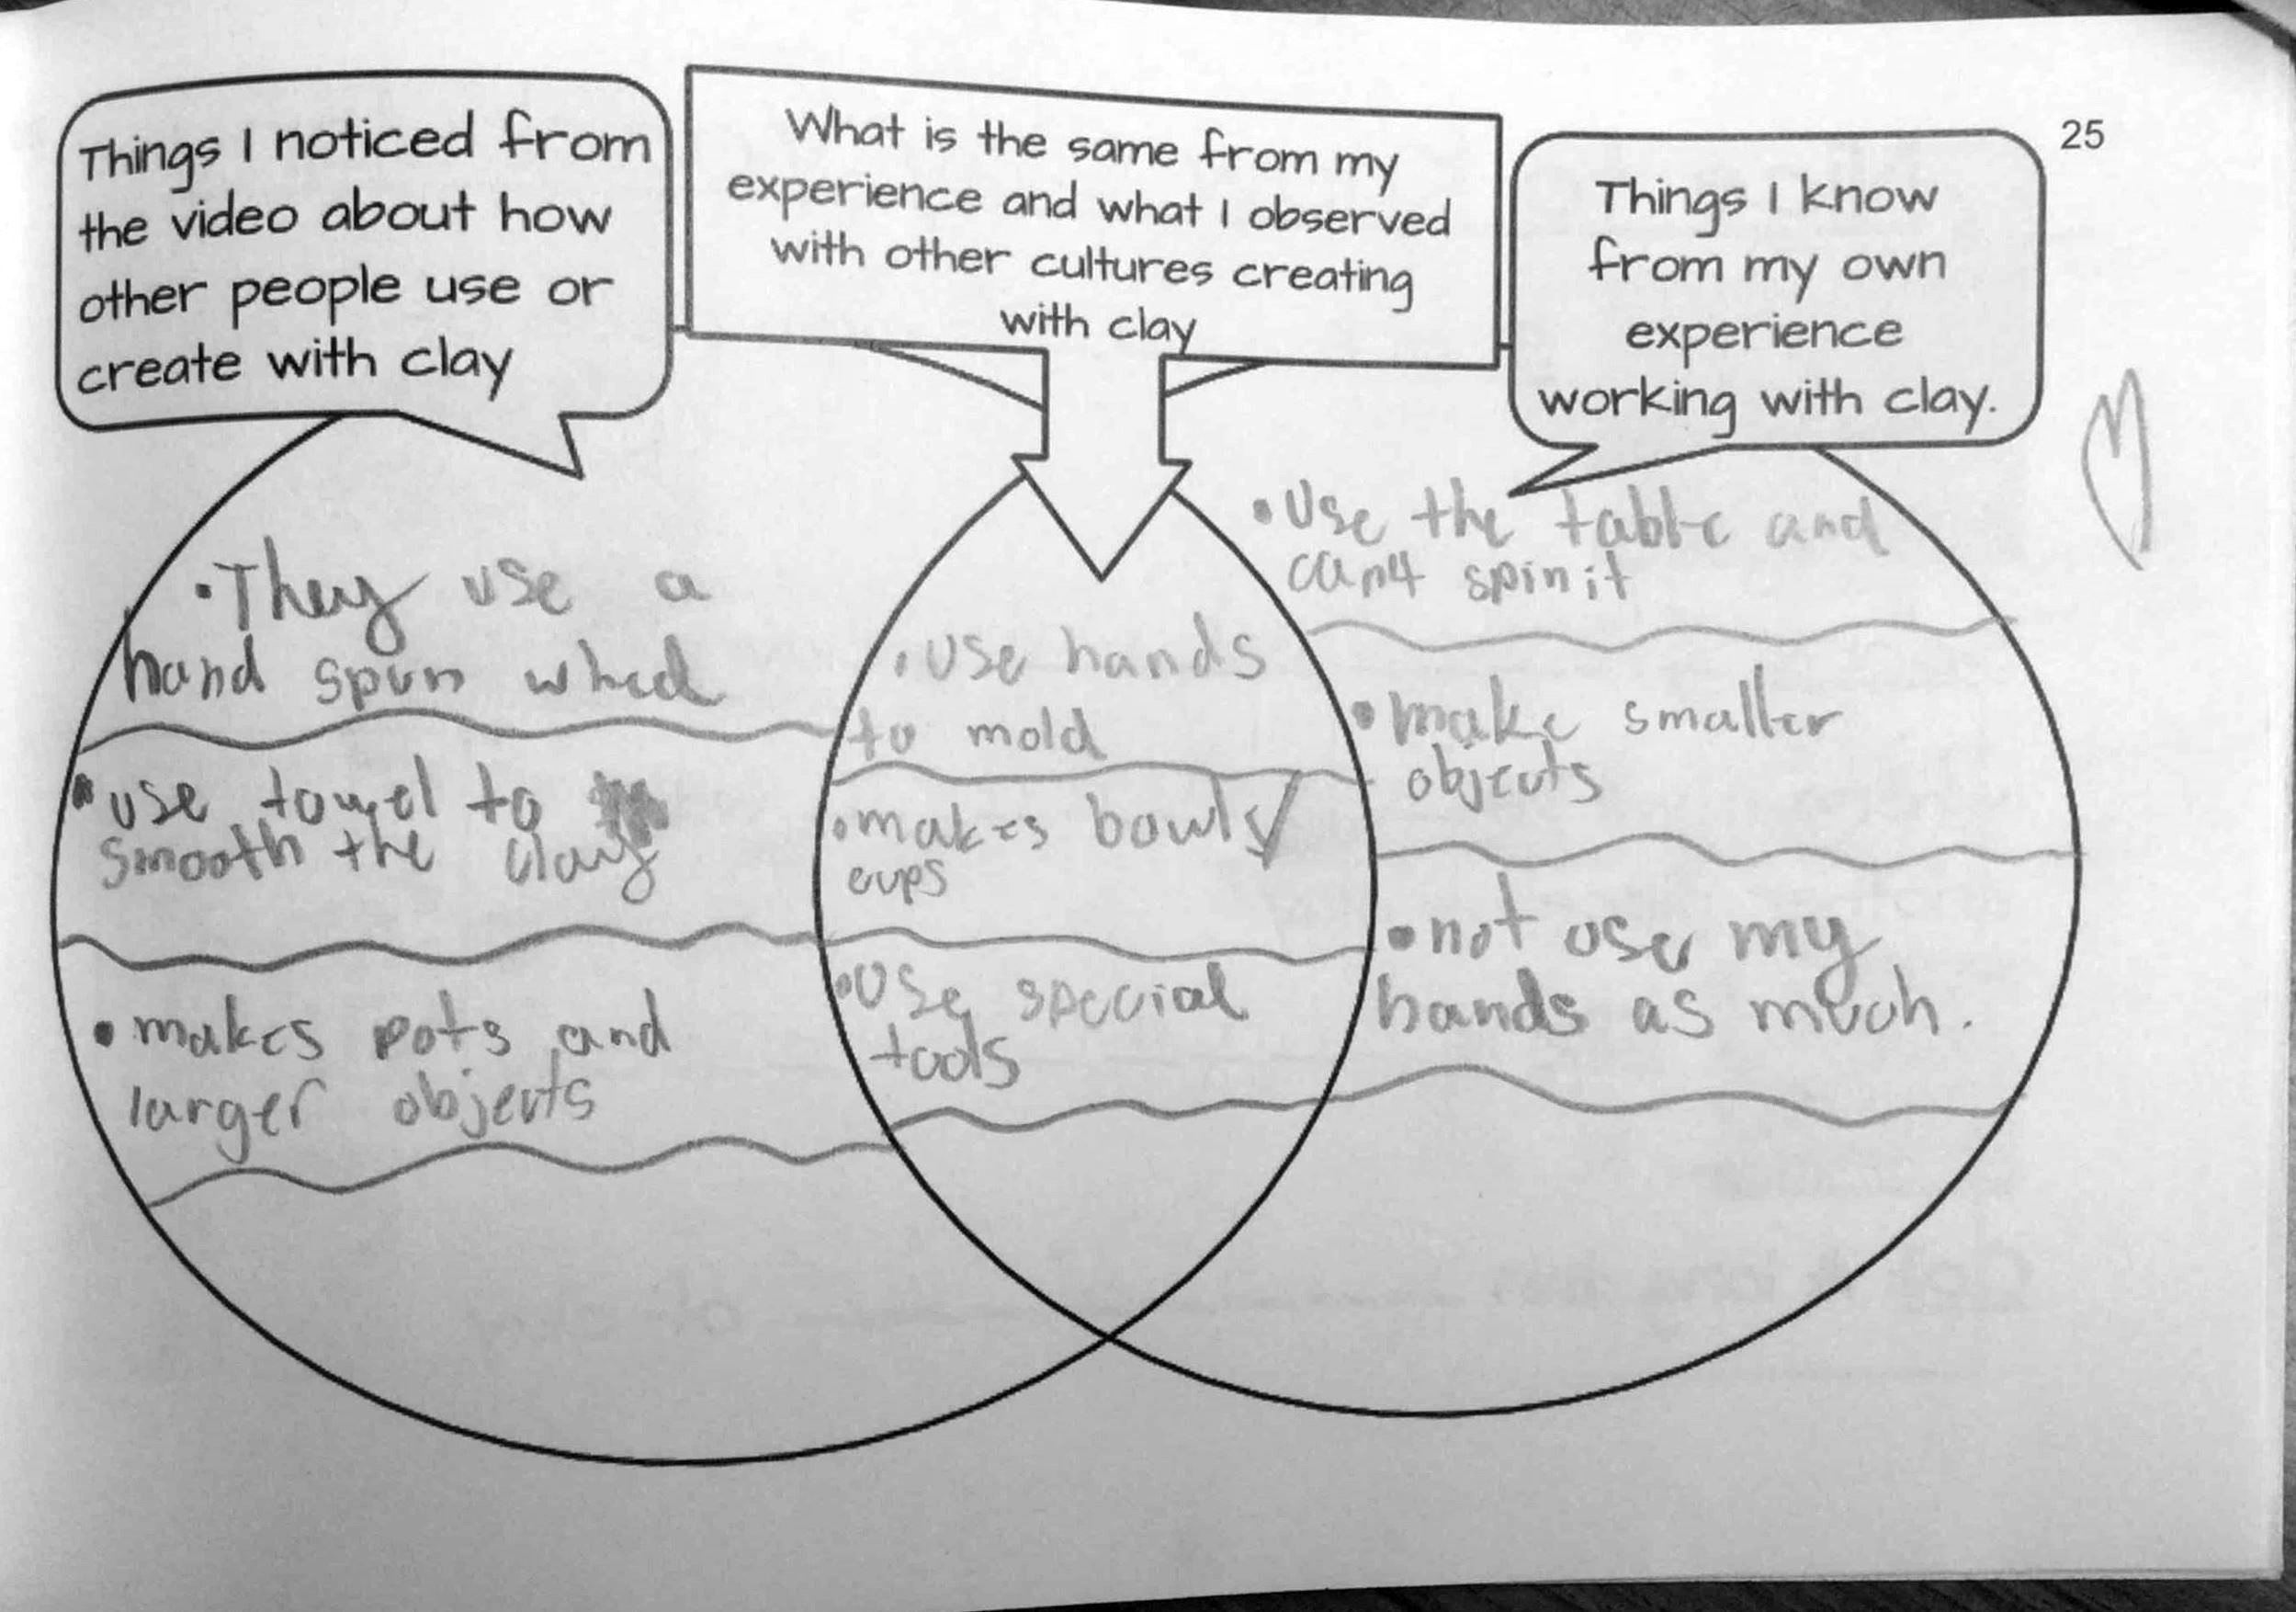 Things I noticed from
the video about how
other people use or
create with clay
What is the same from my
experience and what I observed
with other cultures creating
with clay
25
Things I know
from my own
experience
working with clay.
• They use a
hand spun wheel
• use towel to
smooth the clay
• makes pots and
larger objects
• use hands
to mold
• makes bowls/
cups
• Use special
tools
• Use the table and
can4 spin it
• make smaller
objects
• not use my
hands as much.